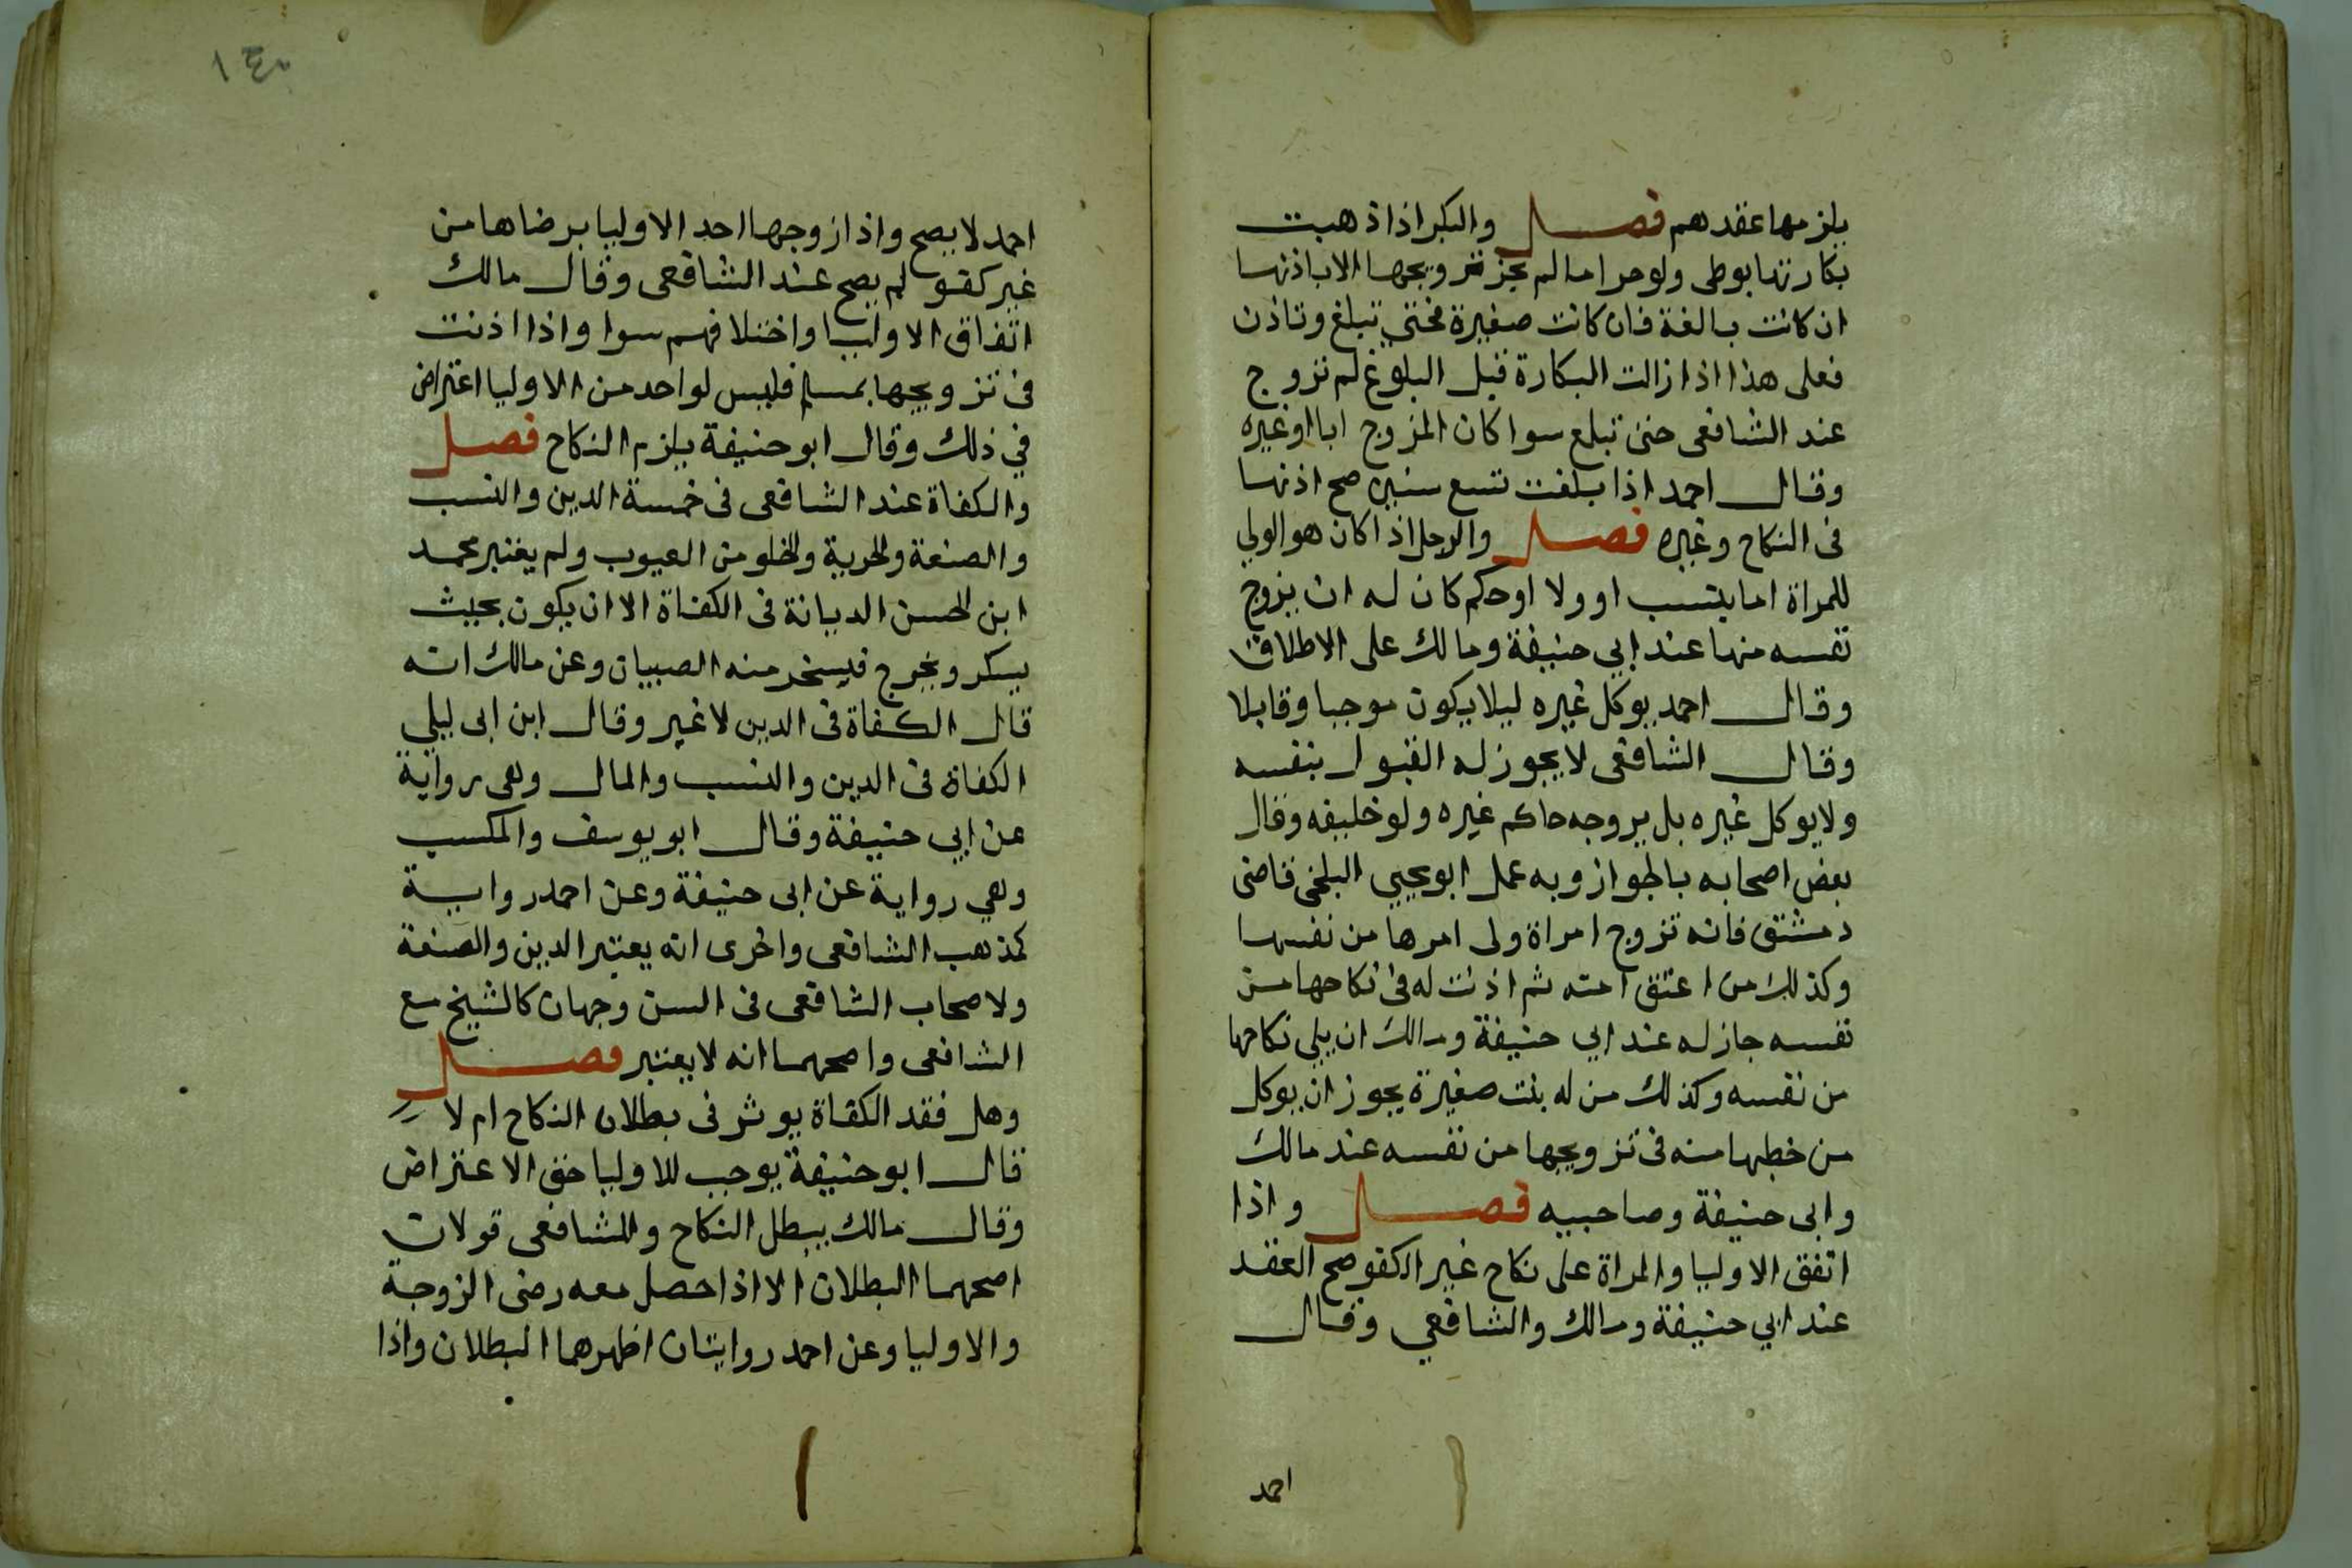 يلزمها عقدهم فصل والبكر اذا ذهبت
بكارتها بوطى ولو حراما لم يجز تزويجها الا باذنها
ان كانت بالغة فان كانت صغيرة فحتى تبلغ وتاذن
فعلى هذا اذا زالت البكارة قبل البلوغ لم تزوج
عند الشافعى حتى تبلغ سوا كان المزوج ابا او غيره
وقال احمد اذا بلغت تسع سنين صح اذنها
فى النكاح وغيره فصل والرجل اذا كان هو الولي
للمراة اما بنسب او ولا او حكم كان له ان يزوج
نفسه منها عند ابي حنيفة ومالك على الاطلاق
وقال احمد يوكل غيره ليلا يكون موجبا وقابلا
وقال الشافعى لا يجوز له القبول بنفسه
ولا يوكل غيره بل يزوجه حاكم غيره ولو خليفه وقال
بعض اصحابه بالجواز وبه عمل ابو يحيي البلخى قاضى
دمشق فانه تزوج امراة ولى امرها من نفسها
وكذلك من اعتق امته ثم اذنت له فى نكاحها من
نفسه جاز له عند ابي حنيفة ومالك ان يلى نكاحها
من نفسه وكذلك من له بنت صغيرة يجوز ان يوكل
من خطبها منه فى تزويجها من نفسه عند مالك
وابى حنيفة وصاحبيه فصل واذا
اتفق الاوليا والمراة على نكاح غير الكفو صح العقد
عند ابي حنيفة ومالك والشافعي وقال
احمد
١٤٠
احمد لا يصح واذا زوجها احد الاوليا برضاها من
غير كفو لم يصح عند الشافعى وقال مالك
اتفاق الاوليا واختلافهم سوا واذا اذنت
فى تزويجها بمسلم فليس لواحد من الاوليا اعتراض
في ذلك وقال ابو حنيفة يلزم النكاح فصل
والكفاة عند الشافعى فى خمسة الدين والنسب
والصنعة والحرية والخلو من العيوب ولم يعتبر محمد
ابن الحسن الديانة فى الكفاة الا ان يكون بحيث
يسكر ويخرج فيسخر منه الصبيان وعن مالك انه
قال الكفاة فى الدين لا غير وقال ابن ابى ليلي
الكفاة فى الدين والنسب والمال وهى رواية
عن ابي حنيفة وقال ابو يوسف والمكسب
وهي رواية عن ابى حنيفة وعن احمد رواية
كمذهب الشافعى واخرى انه يعتبر الدين والصنعة
ولاصحاب الشافعى فى السن وجهان كالشيخ مع
الشافعى واصحهما انه لا يعتبر فصل
وهل فقد الكفاة يوثر فى بطلان النكاح ام لا
قال ابو حنيفة يوجب للاوليا حق الاعتراض
وقال مالك يبطل النكاح وللشافعى قولان
اصحهما البطلان الا اذا حصل معه رضى الزوجة
والاوليا وعن احمد روايتان اظهرهما البطلان واذا